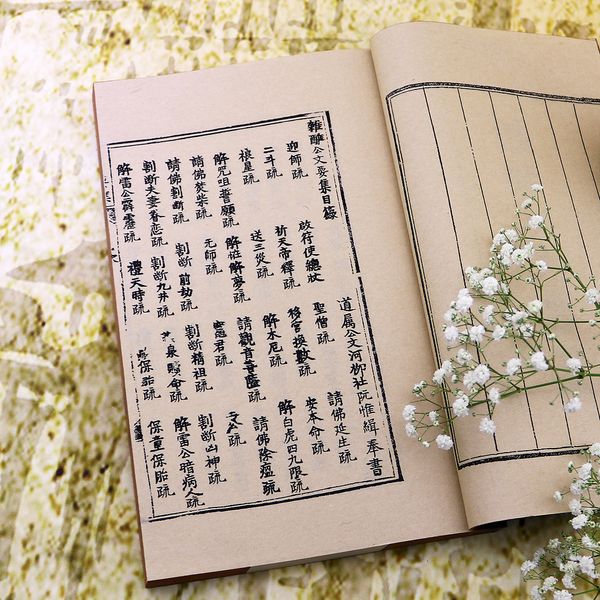 雜醮公文要集目錄 道属公文河柳社阮惟緝奉書
迎師疏 啟行便總狀 聖僧疏 請佛延生疏
二斗疏 祈天帝釋疏 移宮換數疏 安本命疏
根星疏 送三災疏 解水厄疏 解白虎四九限疏
解咒咀善願疏 解夢疏 請觀音菩薩疏 請佛除瘟疏
請佛焚柴疏 元師疏 君疏 疏
請佛割断疏 割断前劫疏 割断精祖疏 割断凶神疏
割断夫妻眷恋疏 割断九井疏 泉賜命疏 解雷公暗病人疏
解雷公霹靂疏 禮天時疏 保胎疏 保童保胎疏